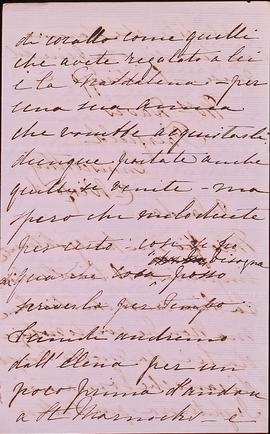 di corallo come quelli
che avete regalato a lei
e la Maddalena per
una sua amica
che vorrebbe acquistarli
dunque portate anche
quelli se venite - ma
spero che me lo direte
per certo: così se
di qua che posso bisogna
scriverla per tempo.
andremo
dall'Elena per un
poco prima d'andare
a St Marnocks - è